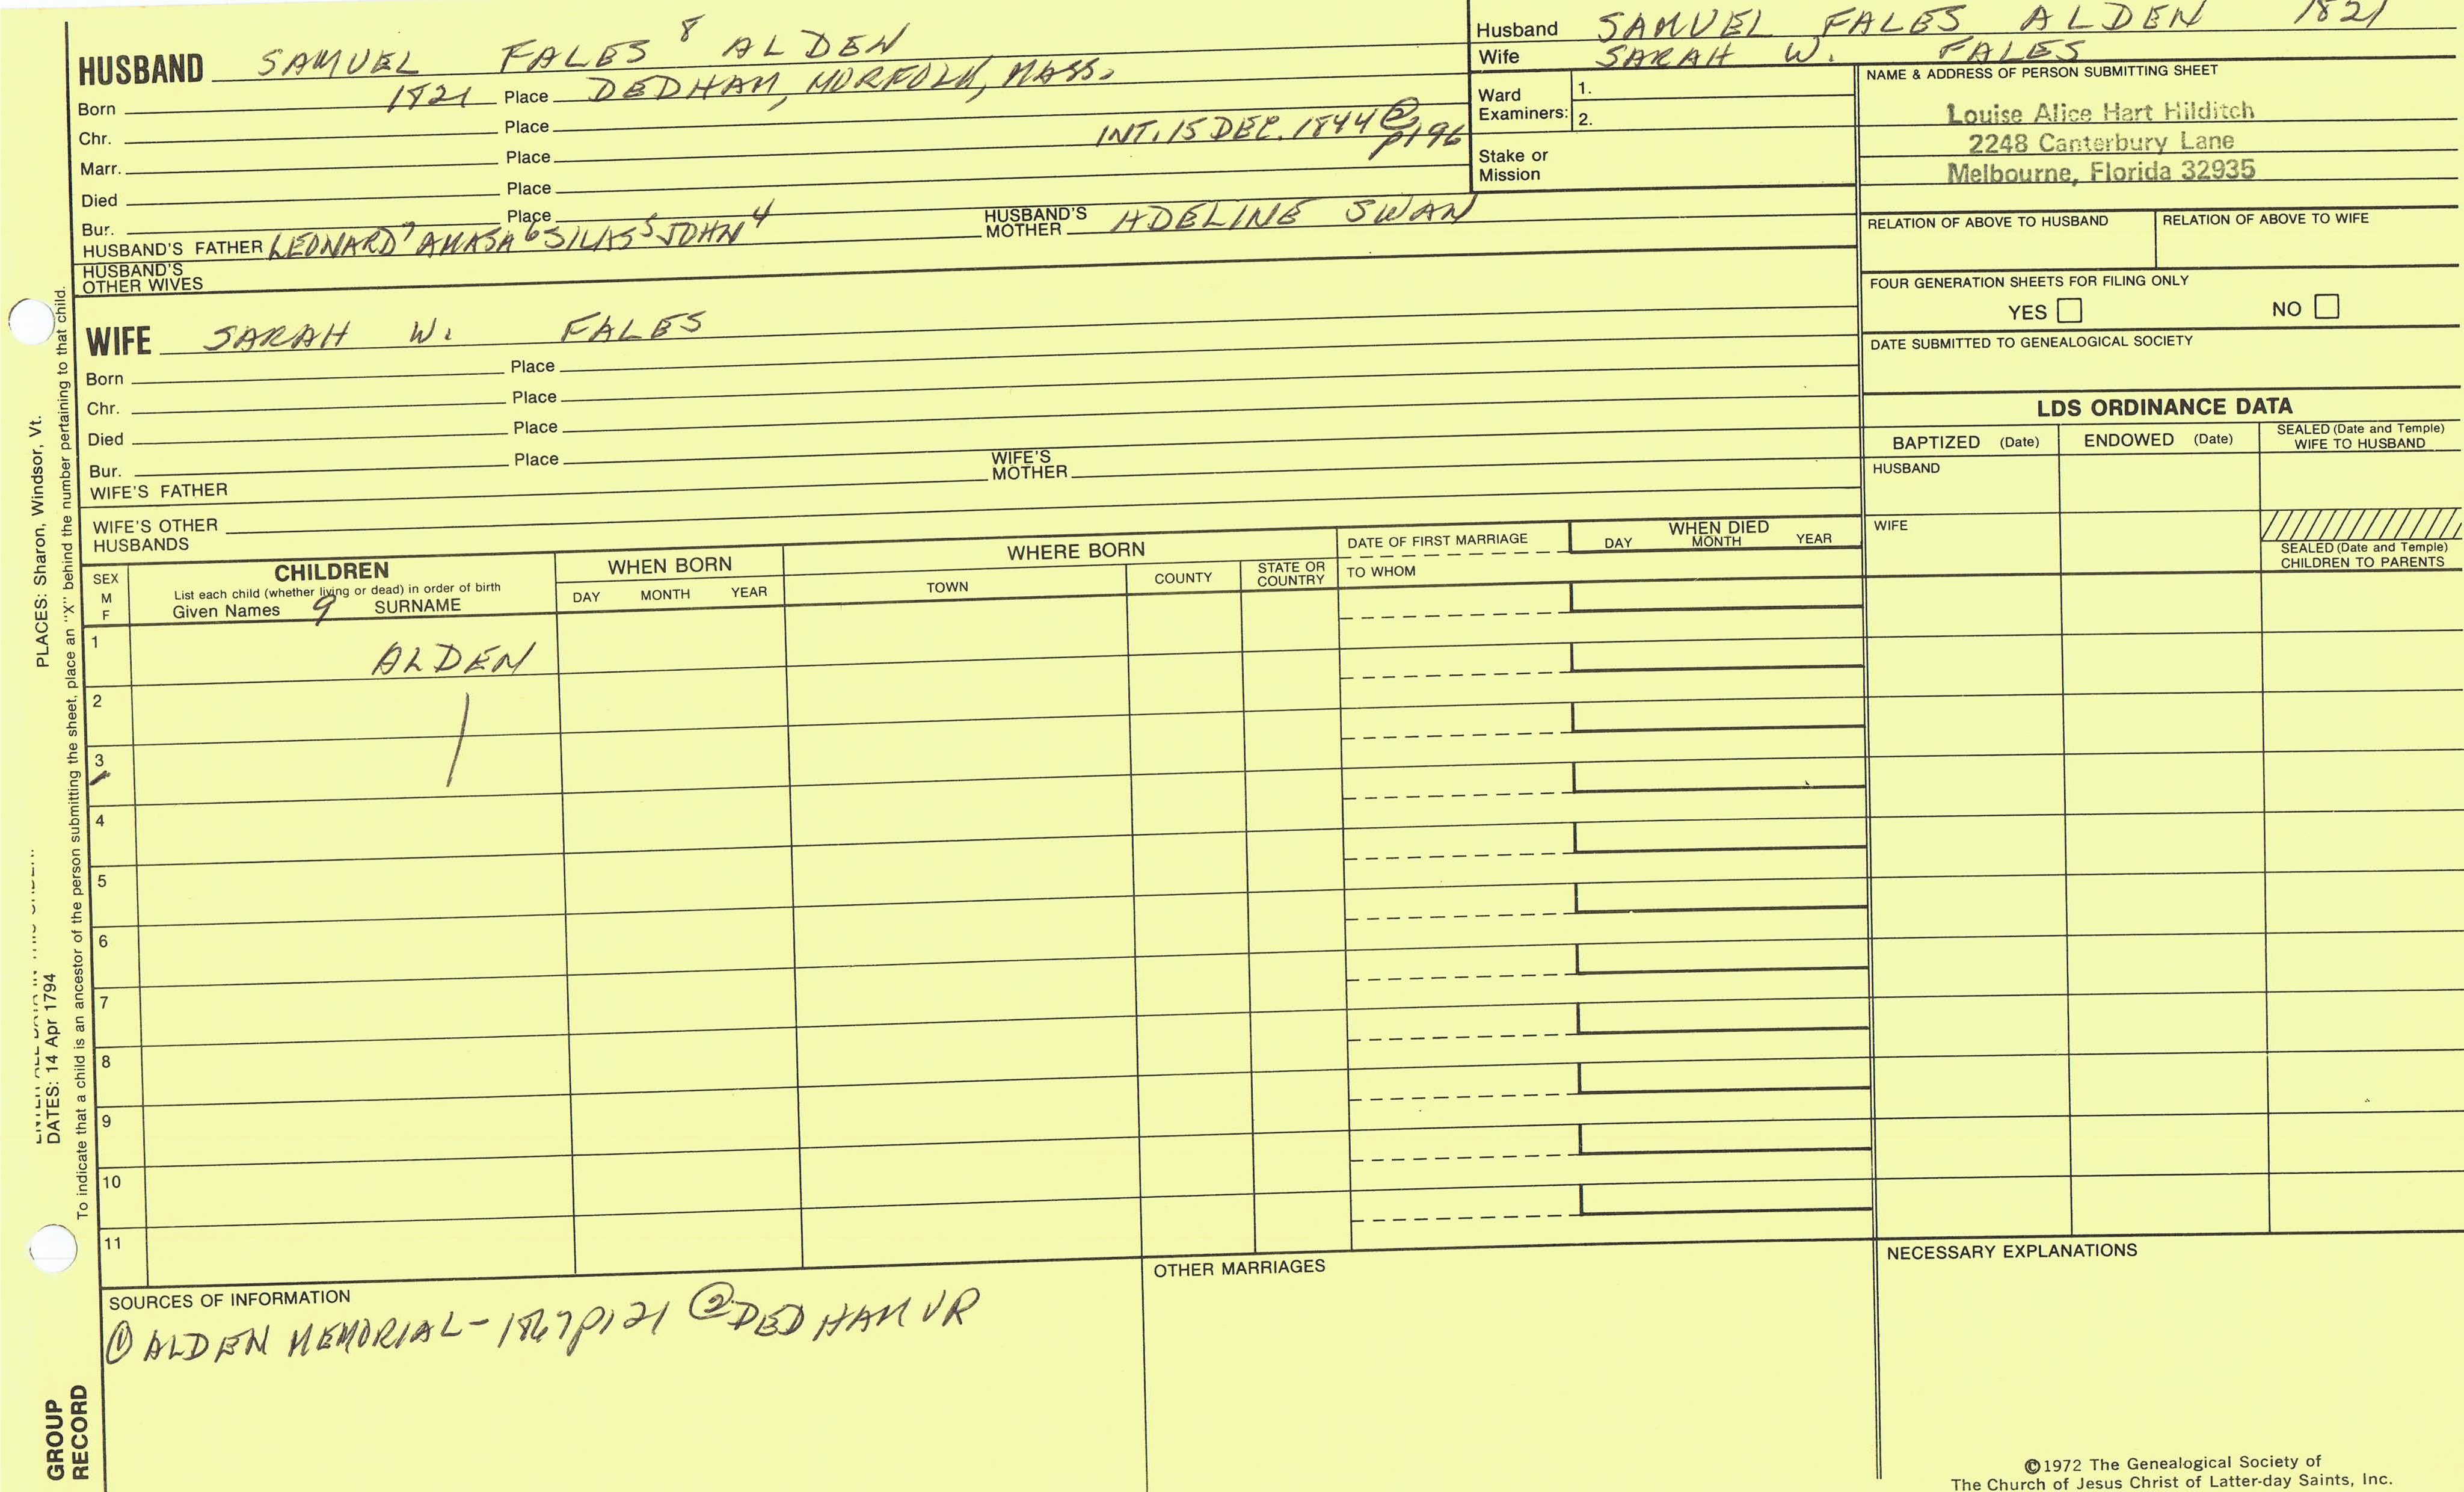 HUSBAND SAMUEL FALES 8 ALDEN
Born 1821 Place DEDHAM, NORFOLK, MASS.
Chr. Place
Marr. Place INT. 15 DEC. 1844 ② p196
Died Place
Bur. Place
HUSBAND'S FATHER LEONARD 7 AMASA 6 SILAS 5 JOHN 4 HUSBAND'S MOTHER ADELINE SWAN
HUSBAND'S OTHER WIVES
WIFE SARAH W. FALES
Born Place
Chr. Place
Died Place
Bur. Place
WIFE'S FATHER WIFE'S MOTHER
WIFE'S OTHER HUSBANDS
Husband SAMUEL FALES ALDEN 1821
Wife SARAH W. FALES
Ward Examiners: 1.
2.
Stake or Mission
NAME & ADDRESS OF PERSON SUBMITTING SHEET
Louise Alice Hart Hilditch
2248 Canterbury Lane
Melbourne, Florida 32935
RELATION OF ABOVE TO HUSBAND RELATION OF ABOVE TO WIFE
FOUR GENERATION SHEETS FOR FILING ONLY
YES NO
DATE SUBMITTED TO GENEALOGICAL SOCIETY
LDS ORDINANCE DATA
BAPTIZED (Date) ENDOWED (Date) SEALED (Date and Temple) WIFE TO HUSBAND
HUSBAND
WIFE
SEALED (Date and Temple) CHILDREN TO PARENTS
SEX M F
CHILDREN
List each child (whether living or dead) in order of birth
Given Names 9 SURNAME
WHEN BORN
DAY MONTH YEAR
WHERE BORN
TOWN COUNTY STATE OR COUNTRY
DATE OF FIRST MARRIAGE
TO WHOM
WHEN DIED
DAY MONTH YEAR
1 ALDEN
2
3
4
5
6
7
8
9
10
11
SOURCES OF INFORMATION
① ALDEN MEMORIAL - 1867 p121 ② DEDHAM VR
OTHER MARRIAGES
NECESSARY EXPLANATIONS
©1972 The Genealogical Society of
The Church of Jesus Christ of Latter-day Saints, Inc.
PLACES: Sharon, Windsor, Vt.
DATES: 14 Apr 1794
To indicate that a child is an ancestor of the person submitting the sheet, place an "X" behind the number pertaining to that child.
GROUP
RECORD